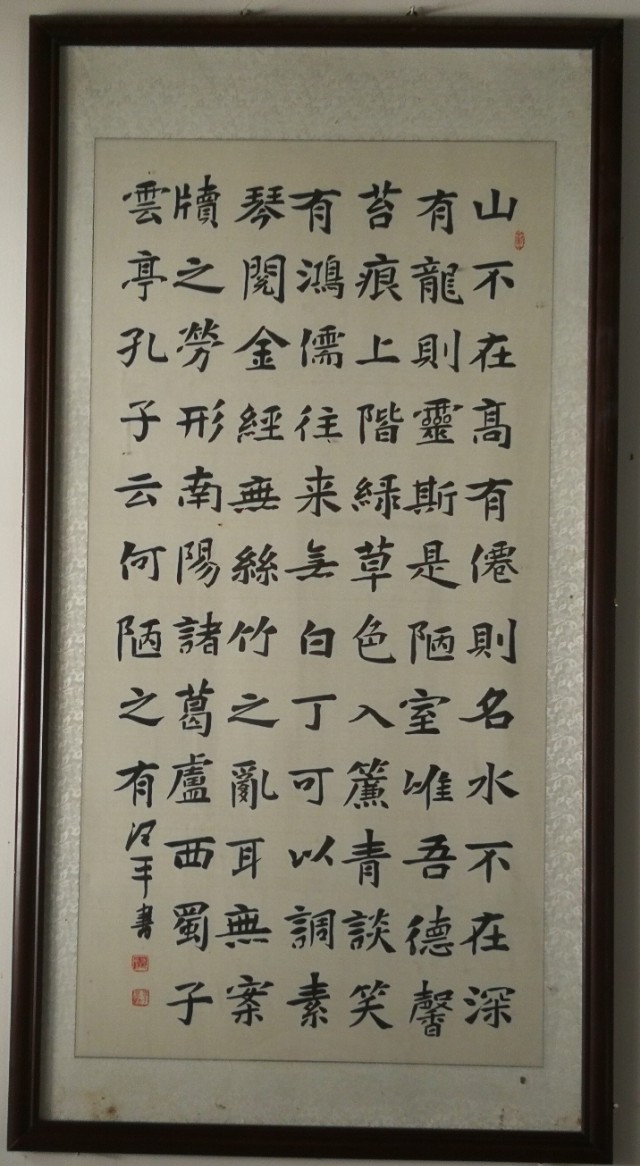 山不在髙有僊則名水不在深
有龍則靈斯是陋室唯吾德馨
苔痕上階緑草色入簾青談笑
有鴻儒往来無白丁可以調素
琴閱金經無絲竹之亂耳無案
牘之勞形南陽諸葛盧西蜀子
雲亭孔子云何陋之有
平書